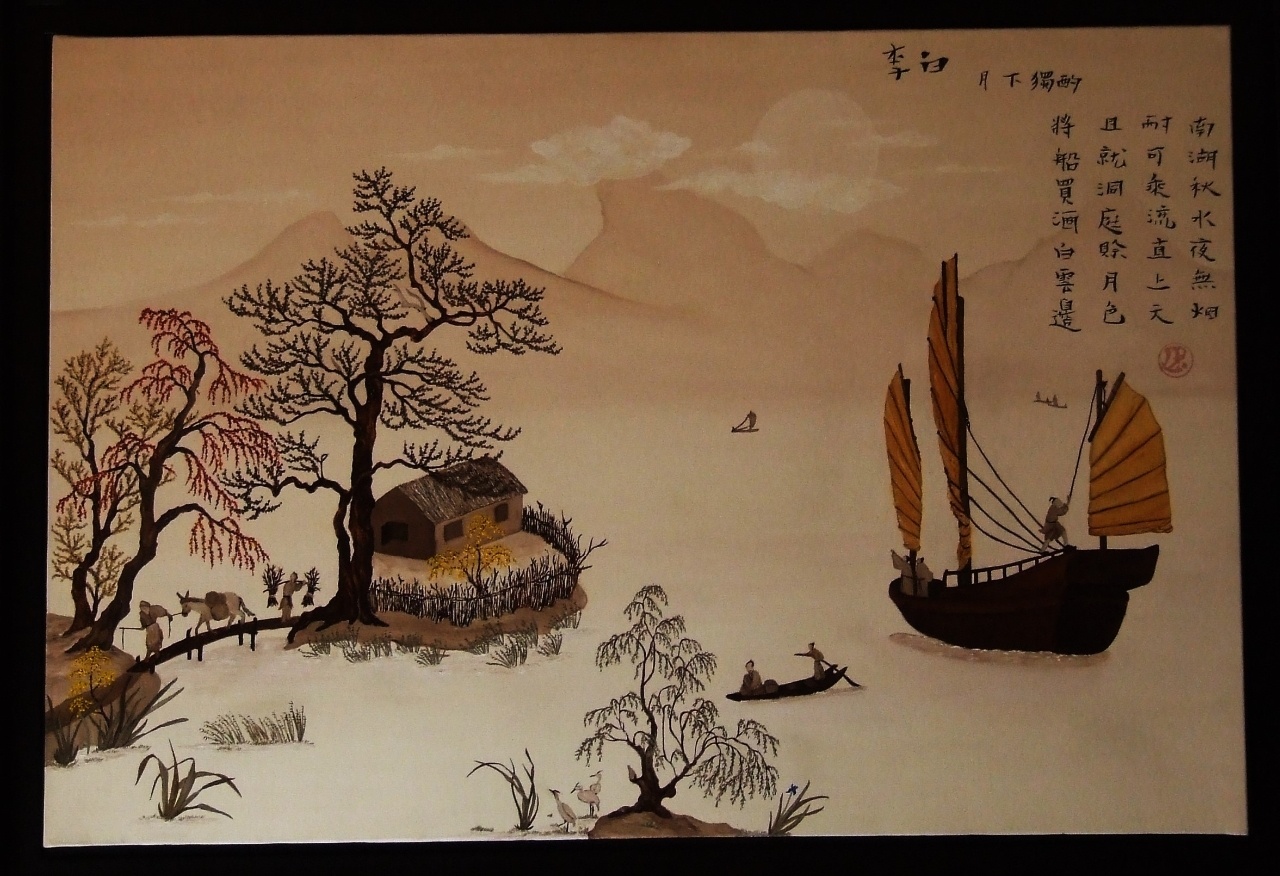 李白
月下獨酌
南湖秋水夜無烟
耐可乘流直上天
且就洞庭賒月色
將船買酒白雲邊